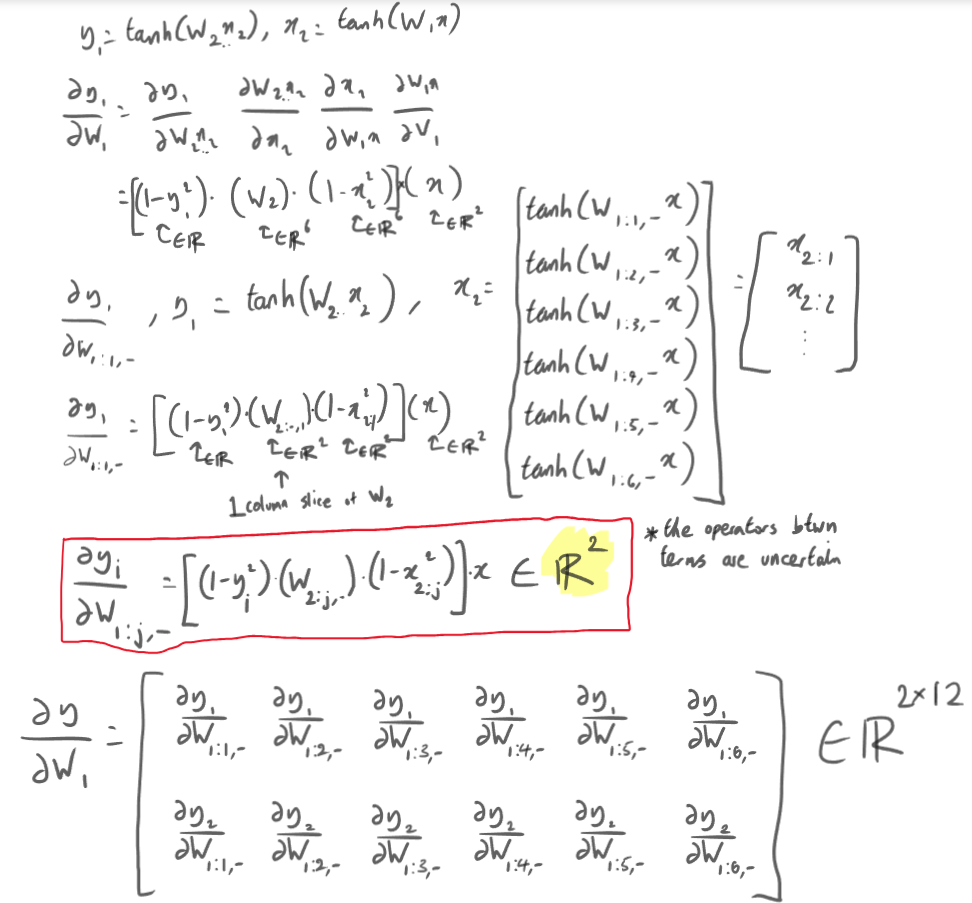 y₁ = tanh(W₂x₂), x₂ = tanh(W₁x)
∂y₁/∂W₁ = ∂y₁/∂W₂x₂ ∂W₂x₂/∂x₂ ∂x₂/∂W₁x ∂W₁x/∂V₁
= [(1-y₁²)·(W₂)·(1-x₂²)](x)
↑∈ℝ ↑∈ℝ⁶ ↑∈ℝ⁶ ↑∈ℝ²
∂y₁/∂W₁:₁,₋ , y₁ = tanh(W₂x₂), x₂ = [tanh(W₁:₁,₋x) tanh(W₁:₂,₋x) tanh(W₁:₃,₋x) tanh(W₁:₄,₋x) tanh(W₁:₅,₋x) tanh(W₁:₆,₋x)] = [x₂:₁ x₂:₂ ⋮]
∂y₁/∂W₁:₁,₋ = [(1-y₁²)·(W₂:₋,₁)·(1-x₂:₁²)](x)
↑∈ℝ ↑∈ℝ² ↑∈ℝ² ↑∈ℝ²
↑
1 column slice of W₂
∂yᵢ/∂W₁:ⱼ,₋ = [(1-yᵢ²)·(W₂:ⱼ,₋)·(1-x₂:ⱼ²)]·x ∈ ℝ²
* the operators btwn
terms are uncertain
∂y/∂W₁ = [∂y₁/∂W₁:₁,₋ ∂y₁/∂W₁:₂,₋ ∂y₁/∂W₁:₃,₋ ∂y₁/∂W₁:₄,₋ ∂y₁/∂W₁:₅,₋ ∂y₁/∂W₁:₆,₋
∂y₂/∂W₁:₁,₋ ∂y₂/∂W₁:₂,₋ ∂y₂/∂W₁:₃,₋ ∂y₂/∂W₁:₄,₋ ∂y₂/∂W₁:₅,₋ ∂y₂/∂W₁:₆,₋] ∈ ℝ²ˣ¹²